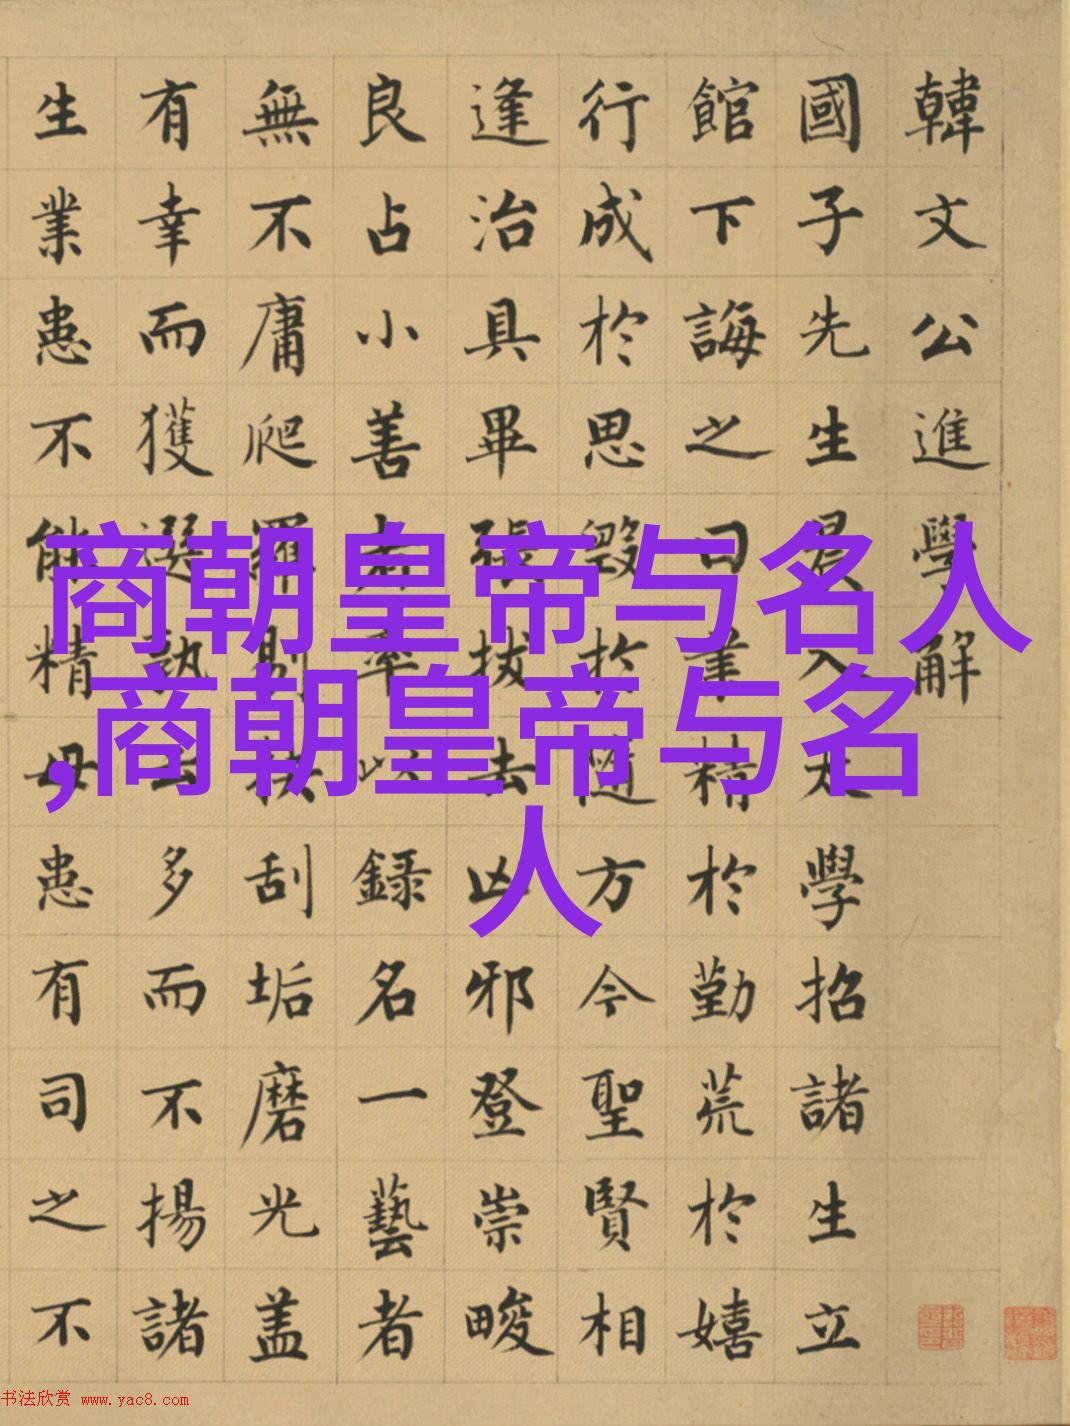 韓文公進學解
國子先生晨入太學招諸生立
館下誨之曰業精於勤荒於嬉
行成於思毀於隨方今聖賢相
逢治具畢張拔去凶邪登崇畯
良占小善者率以錄名一藝者
無不庸爬羅剔抉刮垢磨光盖
有幸而獲選孰云多而不揚諸
生業患不能精毋患有司之不
商朝皇帝与名人
,商朝皇帝与名
人
书法欣赏 www.yac8.com